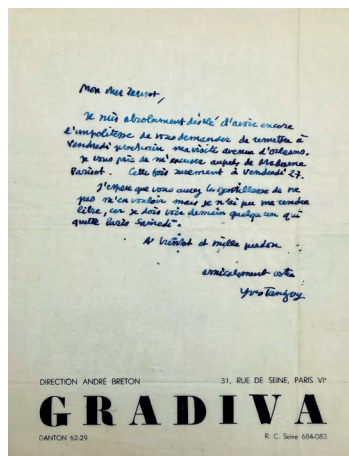 Mon cher Parisot,
Je suis absolument désolé d'avoir encore
l'impolitesse de vous demander de remettre à
Vendredi prochain ma visite avenue d'Orléans.
Je vous prie de m'excuser auprès de Madame
Parisot. Cette fois surement à Vendredi 27.
J'espère que vous aurez la gentillesse de ne
pas m'en vouloir mais je n'ai pu me rendre
libre, car je dois voir demain quelqu'un qui
quitte Paris Samedi.
A bientot et mille pardon
amicalement votre
Yves Tanguy
DIRECTION ANDRÉ BRETON 31, RUE DE SEINE, PARIS VIe
GRADIVA
DANTON 62-29 R. C. Seine 684-083